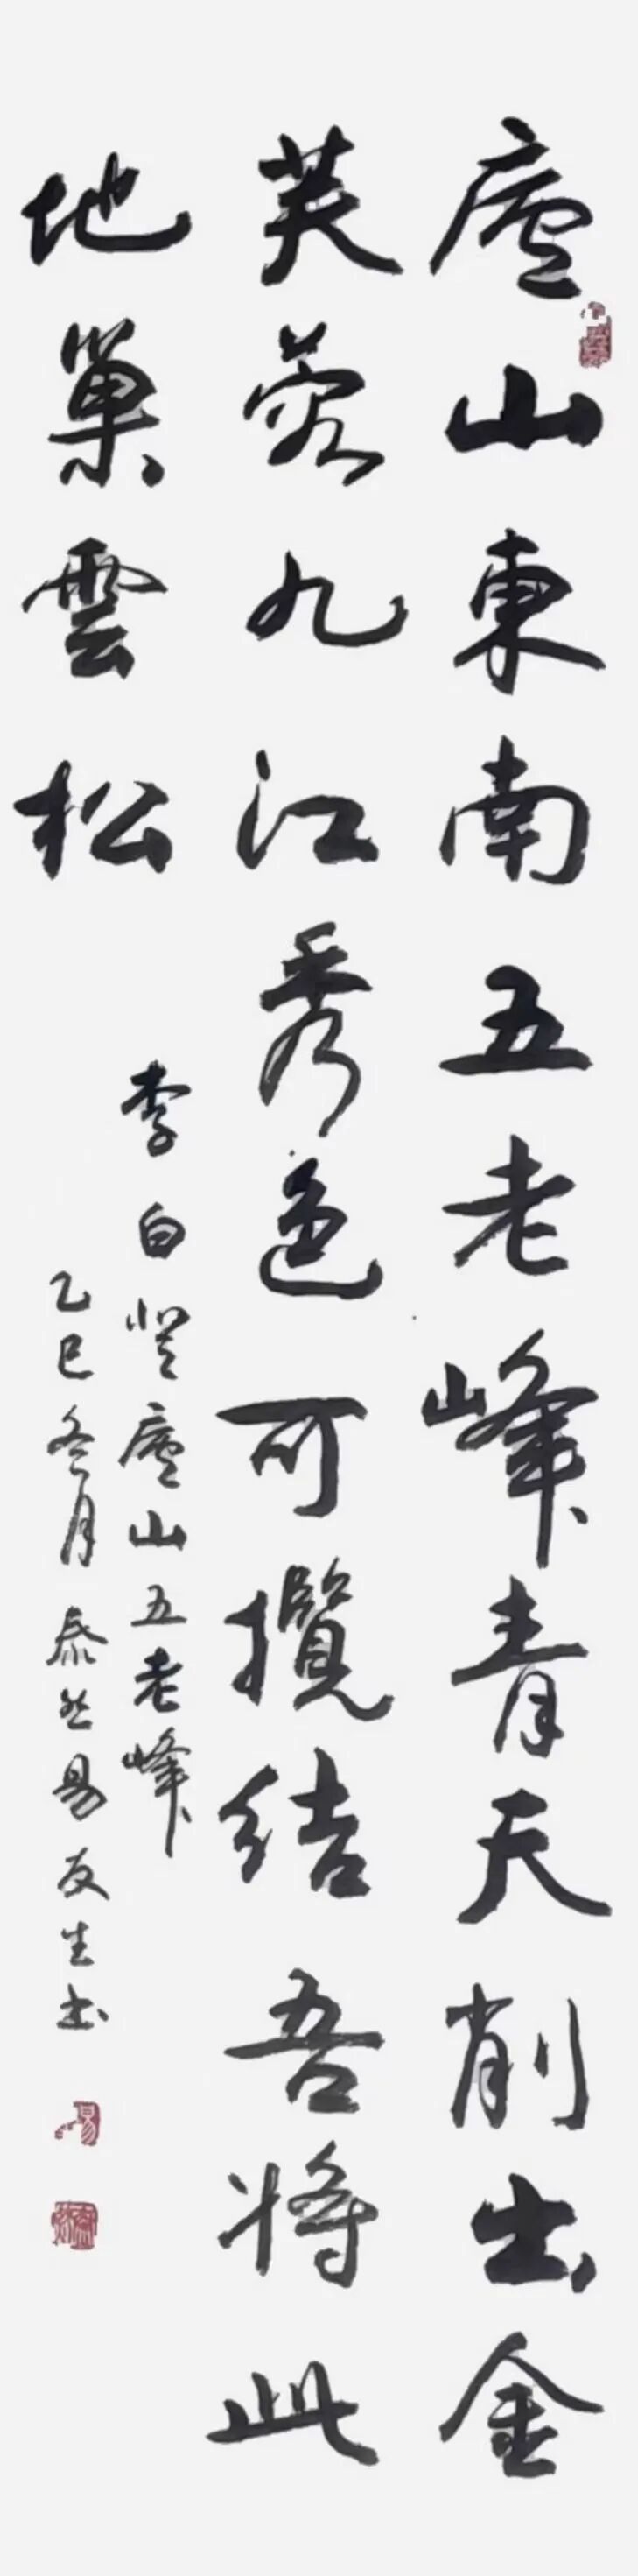 廬山東南五老峰青天削出金
芙蓉九江秀色可攬結吾將此
地巢雲松
李白登廬山五老峰
乙巳冬月泰然易友生书
易